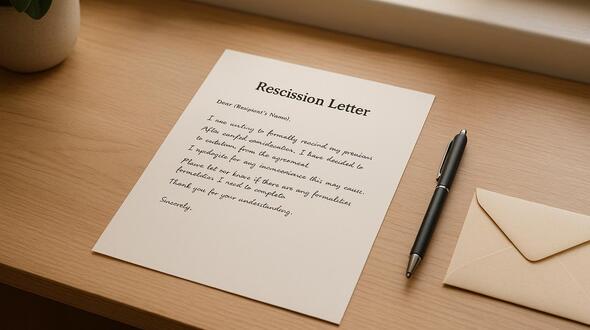 Rescission Letter
Dear (Recipient's Name),
I are writing to formally rescind my previous
After carefed consideration, I have decided to
to cutstum from the agreement
I apologite for any inconvenience this may cause.
Please let nor know if there are any formalities
formelities I need to complets
Thank you for your understanding.
Sincerely,